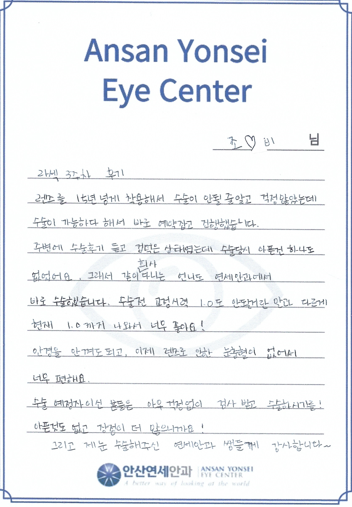 Ansan Yonsei
Eye Center
조♡비 님
라섹 3주차 후기
렌즈를 15년 넘게 착용해서 수술이 안될 줄알고 걱정많았는데
수술이 가능하다 해서 바로 예약잡고 진행했습니다.
주변에 수술후기 듣고 겁먹은 상태였는데 수술당시 아픈건 하나도
없었어요. 그래서 같이 다니는 언니도 연세안과에서
회사
바로 수술했습니다. 수술전 교정시력 1.0도 안됐지만 안과 다르게
현재 1.0까지 나와서 너무 좋아요!
안경을 안껴도되고, 이제 렌즈로 인한 눈충혈이 없어서
너무 편해요.
수술 예정자이신 분들은 아무 걱정없이 검사 받고 수술하시기를!
아픈것도 없고 장점이 더 많으니까요!
그리고 제눈 수술해주신 연세안과 쌤들께 감사합니다~
안산연세안과 ANSAN YONSEI
EYE CENTER
A better way of looking at the world